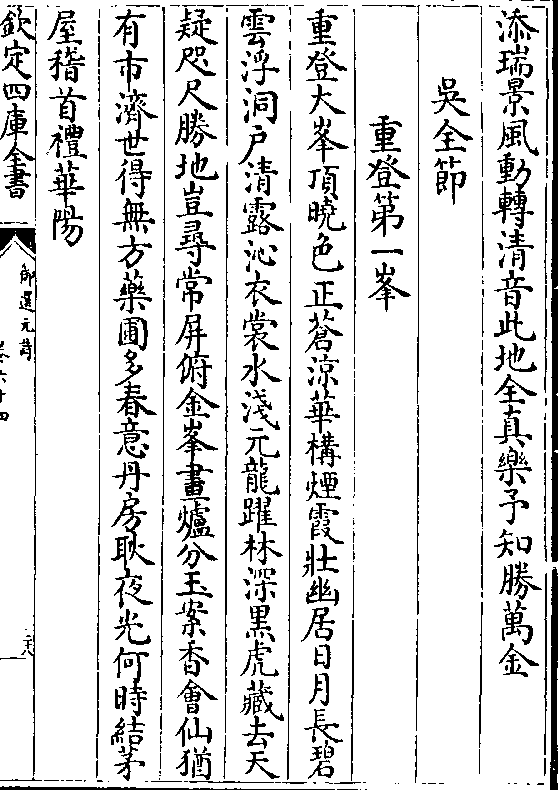 添瑞景風動轉清音此地全真樂予知勝萬金
吳全節
重登第一峯
重登大峯頂曉色正蒼涼華構煙霞壯幽居日月長碧
雲浮洞户清露沁衣裳水淺元龍躍林深黒虎藏去天
疑咫尺勝地豈尋常屏俯金峯畫爐分玉案香會仙猶
有市濟世得無方藥圃多春意丹房耿夜光何時結茅
屋稽首禮華陽
欽定四庫全書
御選元詩
卷六十四